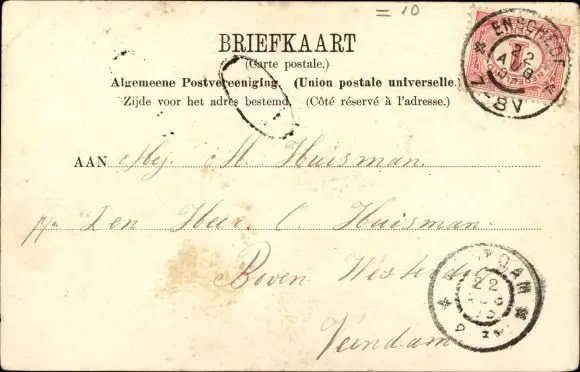 = 10
BRIEFKAART
(Carte postale.)
Algemeene Postvereeniging. (Union postale universelle)
Zijde voor het adres bestemd. (Côté réservé à l'adresse.)
ENSCHEDE
22 AUG
7-8V
1
AAN Mej. M. Huisman.
p/a Den Heer C. Huisman.
Boven Westerdiep
Veendam
22 AUG